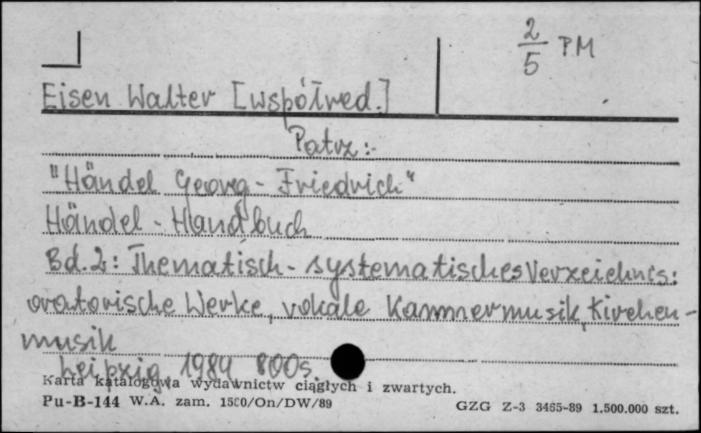 2/5 PM
Eisen Walter [współred.]
Patrz:
"Händel Georg-Friedrich"
Händel-Handbuch
Bd.2: Thematisch-systematisches Verzeichnis:
oratorische Werke, vokale Kammermusik, Kirchen-
musik
Leipzig 1984 800s.
Karta katalogowa wydawnictw ciągłych i zwartych.
Pu-B-144 W.A. zam. 1500/On/DW/89 GZG Z-3 3465-89 1.500.000 szt.